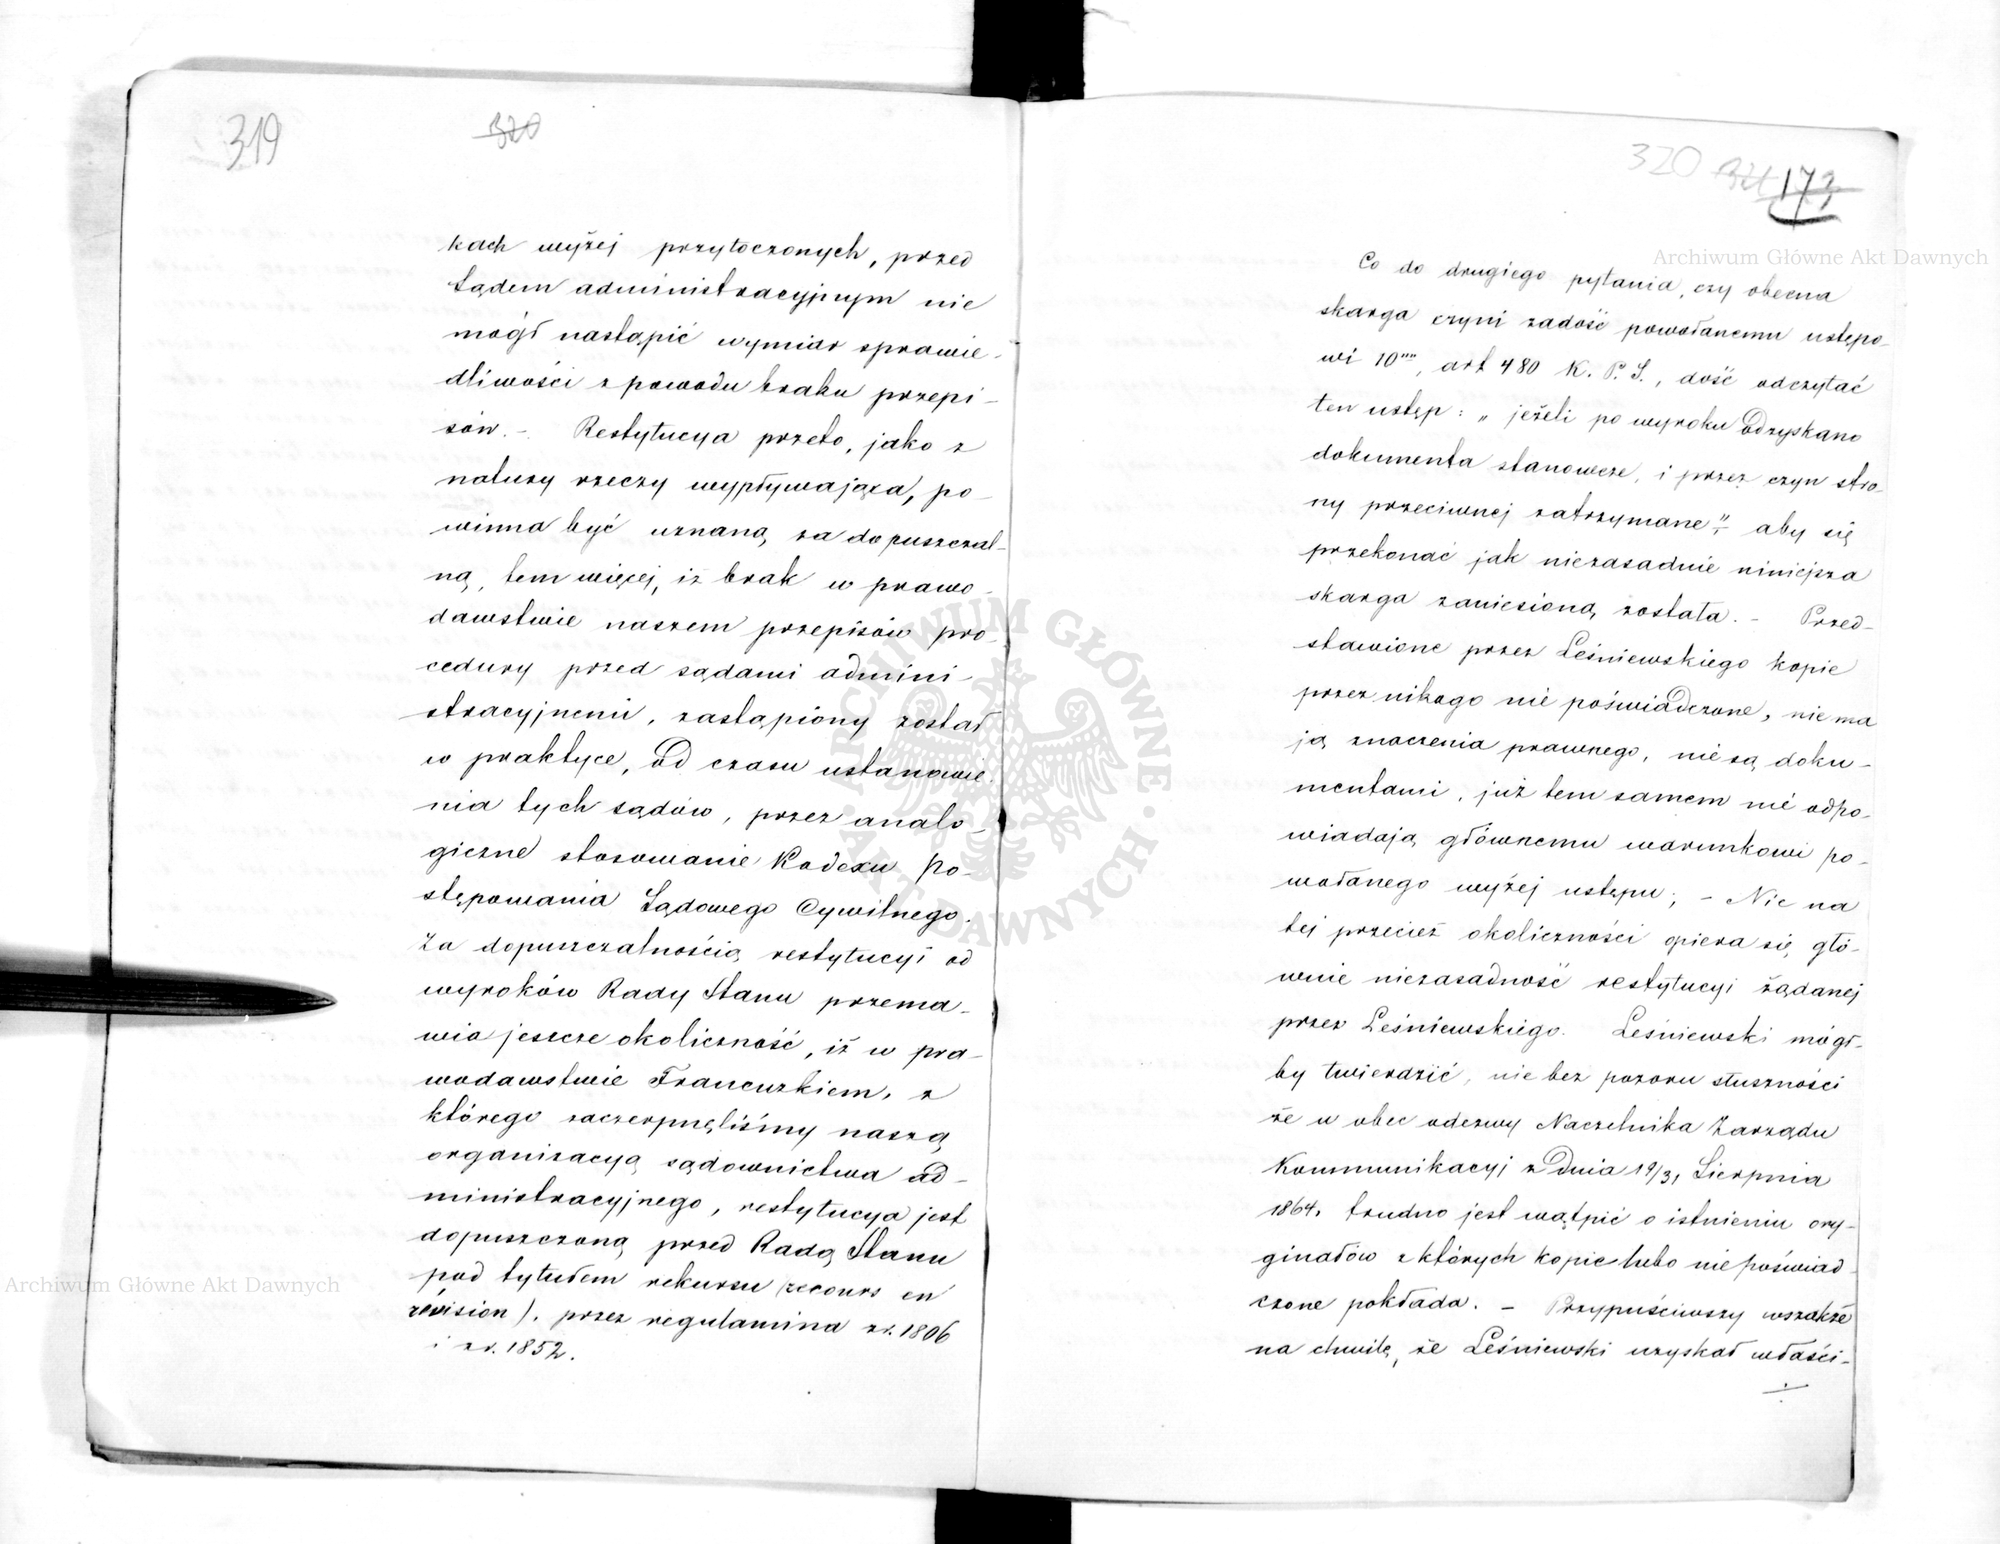 319
320
kach wyżej przytoczonych, przed
Sądem administracyjnym nie
mógł nastąpić wymiar sprawie-
dliwości z powodu braku przepi-
sów. - Restytucya przeto, jako z
natury rzeczy wypływająca, po-
winna być uznaną za dopuszczal-
ną, tem więcej, iż brak w prawo-
dawstwie naszem przepisów pro-
cedury przed sądami admini-
stracyjnemi, zastąpiony został
w praktyce, od czasu ustanowie-
nia tych sądów, przez analo-
giczne stosowanie Kodexu Po-
stępowania Sądowego Cywilnego.
Za dopuszczalnością restytucyi od
wyroków Rady Stanu przema-
wia jeszcze okoliczność, iż w pra-
wodawstwie Francuzkiem, z
którego zaczerpnęliśmy naszą
organizacyą sądownictwa ad-
ministracyjnego, restytucya jest
dopuszczoną przed Radą Stanu
pod tytułem rekursu (recours en
révision), przez regulamina z r. 1806
i z r. 1852.
320 321 173
Co do drugiego pytania, czy obecna
skarga czyni zadość powołanemu ustępo-
wi 10mu, art 480 K. P. S., dość odczytać
ten ustęp: „jeżeli po wyroku odzyskano
dokumenta stanowcze, i przez czyn stro-
ny przeciwnej zatrzymane" aby się
przekonać jak niezasadnie niniejsza
skarga zaniesioną została. - Przed-
stawione przez Leśniewskiego kopie
przez nikogo nie poświadczone, nie ma
ją znaczenia prawnego, nie są doku-
mentami, już tem samem nie odpo-
wiadają głównemu warunkowi po-
wołanego wyżej ustępu; - Nie na
tej przecież okoliczności opiera się głó-
wnie niezasadność restytucyi żądanej
przez Leśniewskiego. Leśniewski mógł-
by twierdzić, nie bez pozoru słuszności
że w obec odezwy Naczelnika Zarządu
Kommunikacyj z Dnia 19/31 Sierpnia
1864. trudno jest wątpić o istnieniu ory-
ginałów z których kopie lubo nie poświad-
czone pokłada. - Przypuściwszy wszakże
na chwilę, że Leśniewski uzyskał właści-
Archiwum Główne Akt Dawnych
Archiwum Główne Akt Dawnych
ARCHIWUM GŁÓWNE AKT DAWNYCH